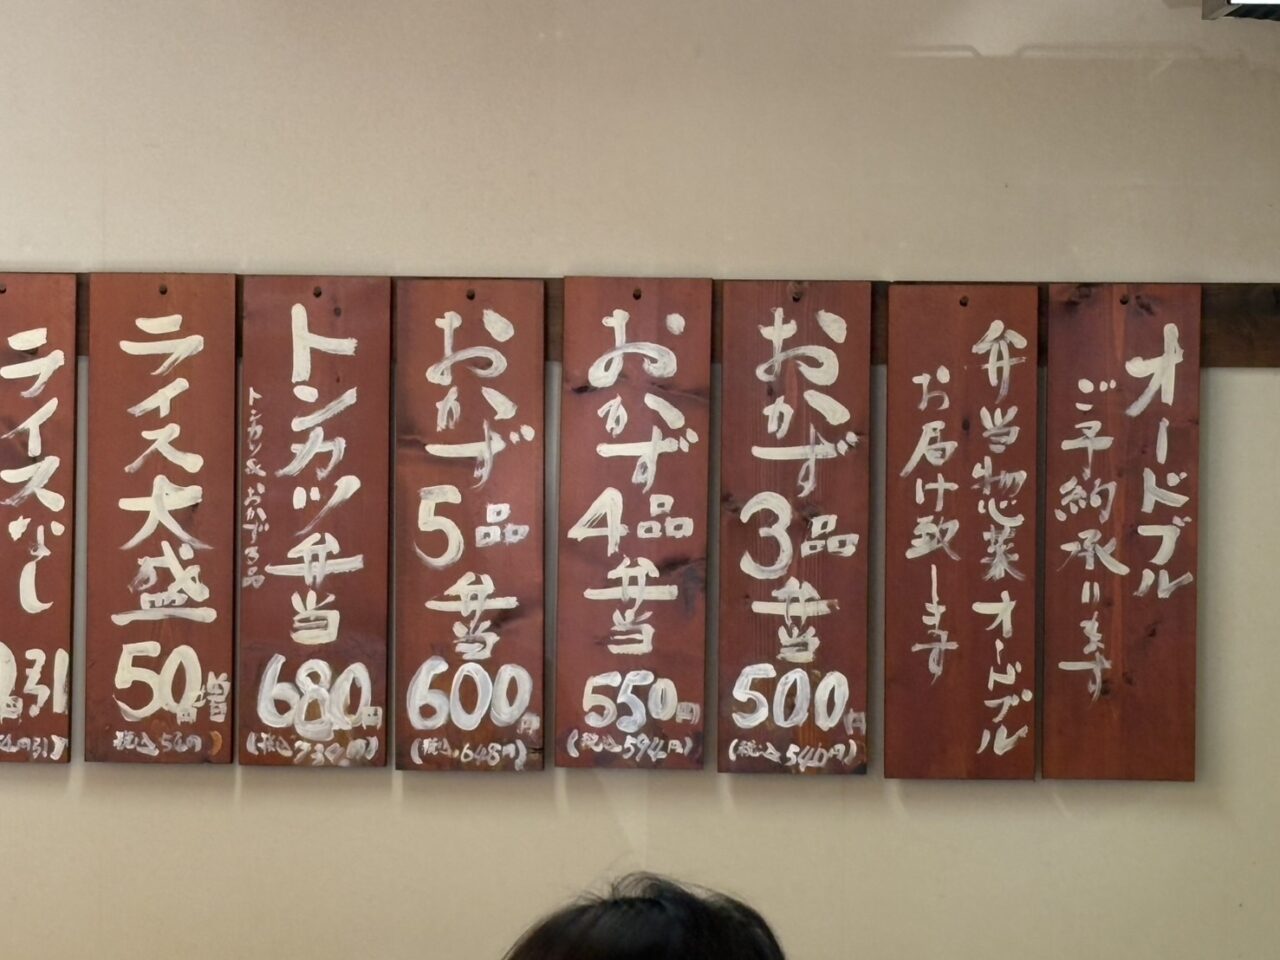 オードブル
ご予約承ります
弁当物惣菜オードブル
お届け致します
おかず
3品
弁当
500円
(税込540円)
おかず
4品
弁当
550円
(税込594円)
おかず
5品
弁当
600円
(税込648円)
トンカツ弁当
680円
(税込734円)
ライス大盛
50円増
税込54円
ライスなし
引
円引)